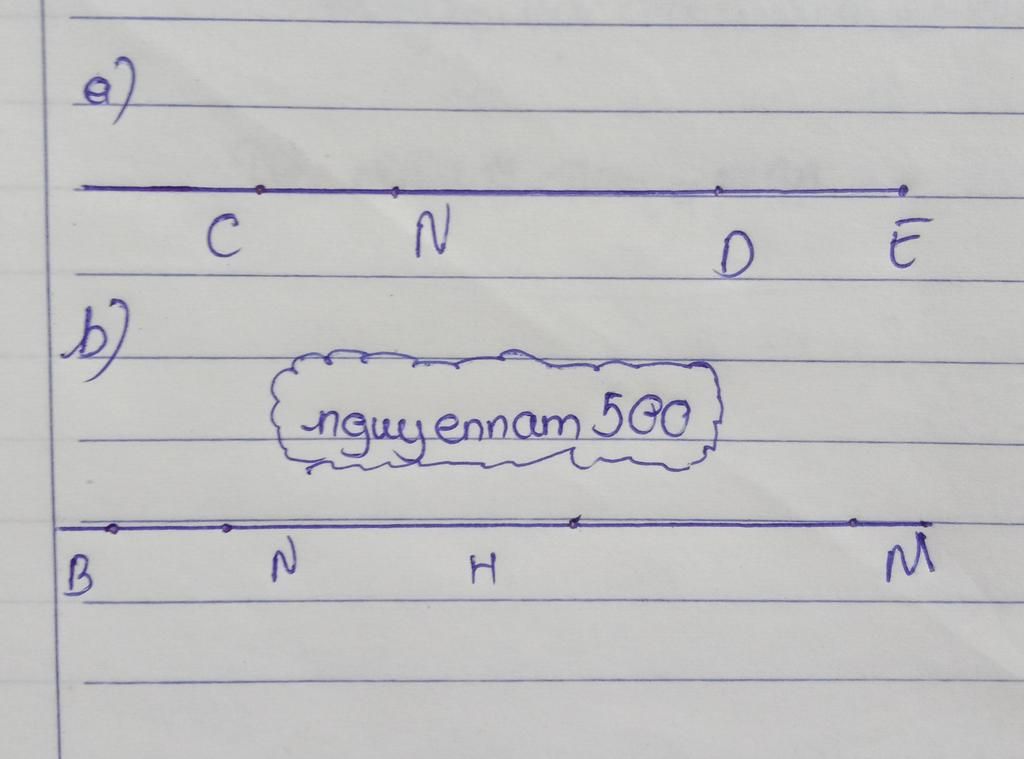 a)
C N D E
b)
nguyennam 500
B N H M